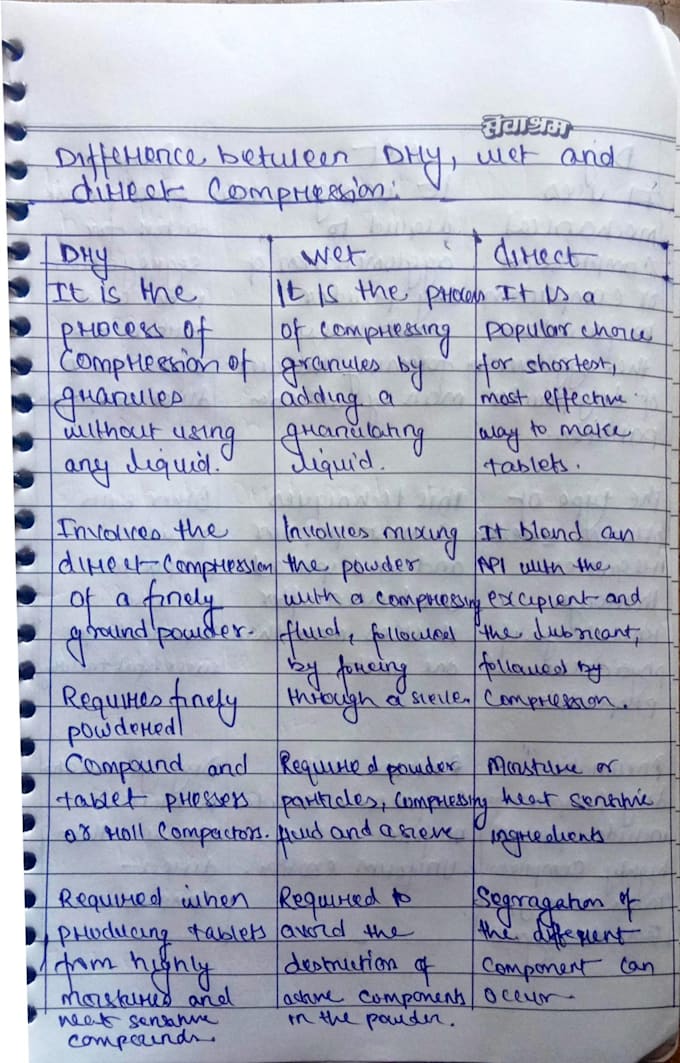 सेवाश्रम
Difference between Dry, wet and
direct Compression:
Dry
It is the
process of
Compression of
granules
without using
any liquid.
Involves the
direct-compression
of a finely
ground powder.
Requires finely
powdered
Compound and
tablet pressers
or roll compactors.
Required when
producing tablets
from highly
moistured and
heat sensitive
compounds.
wet
It is the process
of compressing
granules by
adding a
granulating
liquid.
Involves mixing
the powder
with a compressing
fluid, followed
by forcing
through a sieve.
Required powder
particles, compressing
fluid and a sieve
Required to
avoid the
destruction of
active components
in the powder.
direct
It is a
popular choice
for shortest,
most effective
way to make
tablets.
It blend an
API with the
excipient and
the lubricant,
followed by
Compression.
Moisture or
heat sensitive
ingredients
Segragation of
the different
component can
occur.